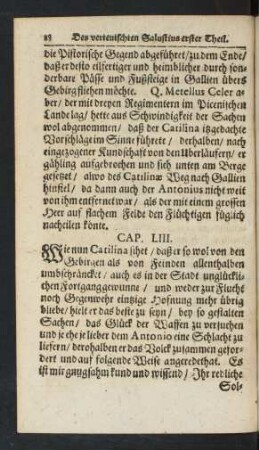 88 Des verteutschten Salustius erster Theil.
die Pistorische Gegend abgeführet/zu dem Ende/
daß er desto eilfertiger und heimblicher durch son-
derbare Pässe und Fußsteige in Gallien übers
Gebirg fliehen möchte. Q. Metellus Celer a-
ber/ der mit dreyen Regimentern im Picenischen
Lande lag/ hette aus Schwindigkeit der Sachen
wol abgenommen/ daß der Catilina itzgedachte
Vorschläge im Sinne führete/ derhalben/ nach
eingezogener Kundschafft von den Uberläufern/ er
gähling aufgebrochen und sich unten am Berge
gesetzet/ alwo des Catilinæ Weg nach Gallien
hinfiel/ da dann auch der Antonius nicht weit
von ihm entfernet war/ als der mit einem grossen
Heer auf flachem Felde den Flüchtigen füglich
nacheilen könte.
CAP. LIII.
Wie nun Catilina sihet/ daß er so wol von den
Gebirgen als von Feinden allenthalben
umbschräncket/ auch es in der Stadt unglückli-
chen Fortgang gewunne/ und weder zur Flucht
noch Gegenwehr eintzige Hofnung mehr übrig
bliebe/ hielt er das beste zu seyn/ bey so gestalten
Sachen/ das Glück der Waffen zu versuchen
und je ehe je lieber dem Antonio eine Schlacht zu
liefern/ derohalben er das Volck zusammen gefor-
dert und auf folgende Weise angeredet hat. Es
ist mir gnugsahm kund und wissend/ Ihr redliche
Sol-